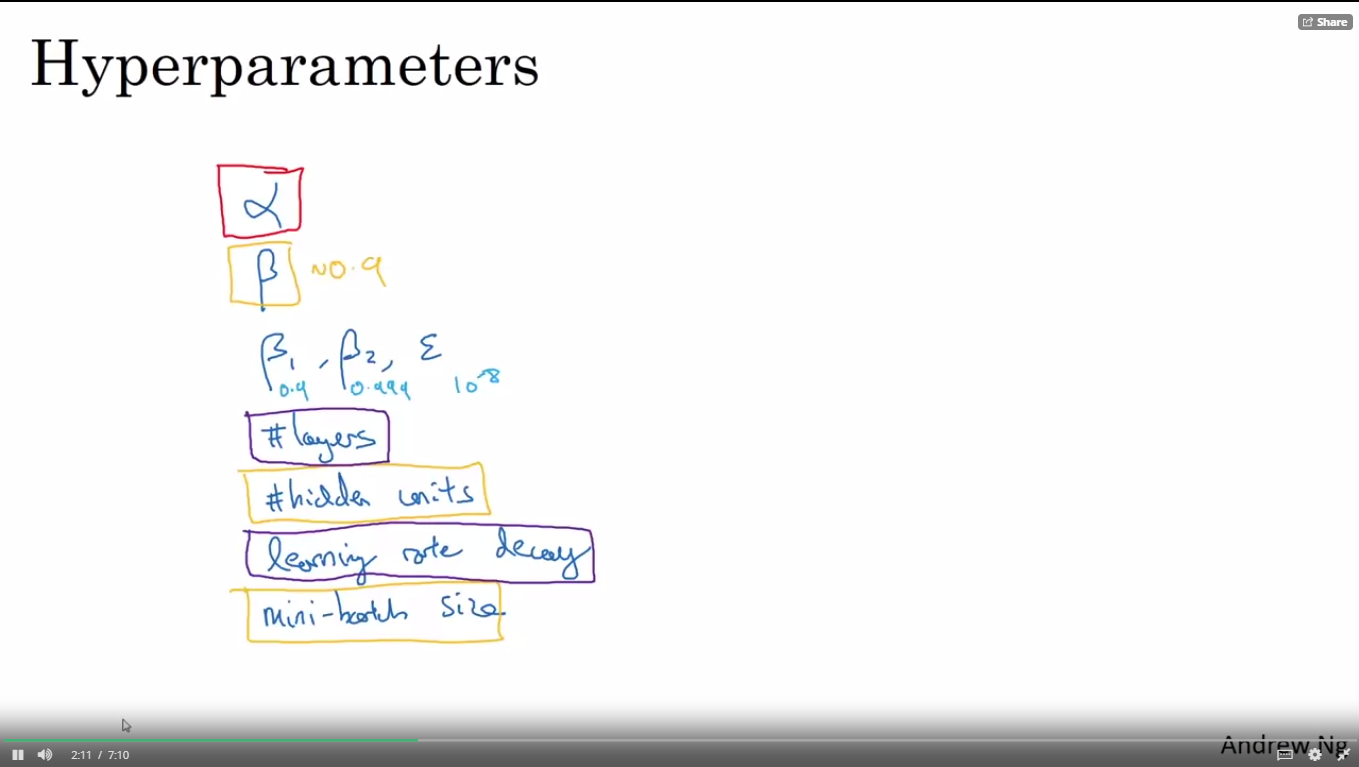 Share
Hyperparameters
α
β ~0.9
β₁, β₂, ε
0.9 0.999 10⁻⁸
#layers
#hidden units
learning rate decay
mini-batch size
Andrew Ng
2:11 / 7:10